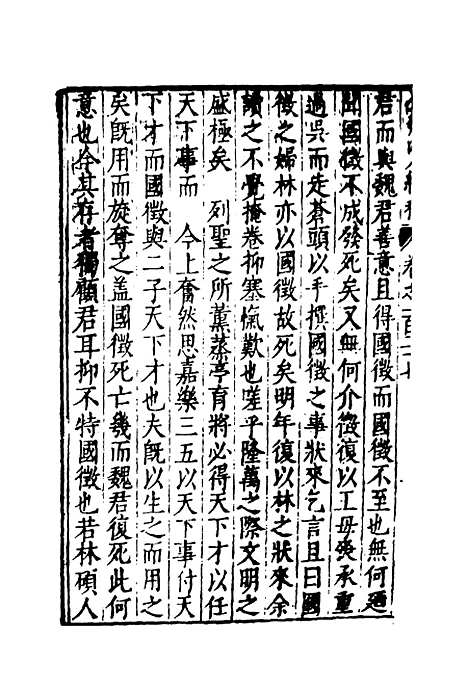 君而與魏君善意且得國徵而國徵不至也無何過
聞國徵不成發死矣又無何介徵復以工毋喪承重
過吳而走蒼頭以手撰國徵之事狀來乞言且曰國
徵之婦林亦以國徵故死矣明年復以林之狀來余
讀之不覺掩卷抑塞愾歎也嗟乎隆萬之際文明之
盛極矣 列聖之所薰蒸亭育將必得天下才以任
天下事而 今上奮然思嘉樂三五以天下事付天
下才而國徵與二子天下才也夫既以生之而用之
矣既用而旋奪之盖國徵死亡幾而魏君復死此何
意也今其存者獨顧君耳抑不特國徵也若林碩人